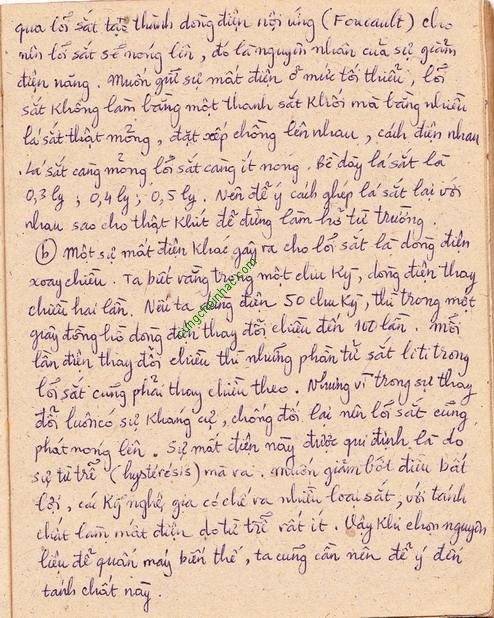 qua lõi sắt tạo thành dòng điện nội ứng (Foucault) cho
nên lõi sắt sẽ nóng lên, đó là nguyên nhân của sự giảm
điện năng. Muốn giữ sự mất điện ở mức tối thiểu, lõi
sắt không làm bằng một thanh sắt khối mà bằng nhiều
lá sắt thật mỏng, đặt xếp chồng lên nhau, cách điện nhau
. Lá sắt càng mỏng lõi sắt càng ít nóng. Bề dày lá sắt là
0,3 ly; 0,4 ly; 0,5 ly. Nên để ý cách ghép lá sắt lại với
nhau sao cho thật khút để đừng làm hở từ trường.
(b) Một sự mất điện khác gây ra cho lõi sắt là dòng điện
xoay chiều. Ta biết rằng trong một chu kỳ, dòng điện thay
chiều hai lần. Nếu ta dùng điện 50 chu kỳ, thì trong một
giây đồng hồ dòng điện thay đổi chiều đến 100 lần. Mỗi
lần điện thay đổi chiều thì những phần tử sắt li ti trong
lõi sắt cũng phải thay chiều theo. Nhưng vì trong sự thay
đổi luôn có sự kháng cự, chống đối lại nên lõi sắt cũng
phát nóng lên. Sự mất điện này được qui định là do
sự từ trễ (hystérésis) mà ra. Muốn giảm bớt điều bất
lợi, các kỹ nghệ gia có chế ra nhiều loại sắt, với tánh
chất làm mất điện do từ trễ rất ít. Vậy khi chọn nguyên
liệu để quấn máy biến thế, ta cũng cần nên để ý đến
tánh chất này.